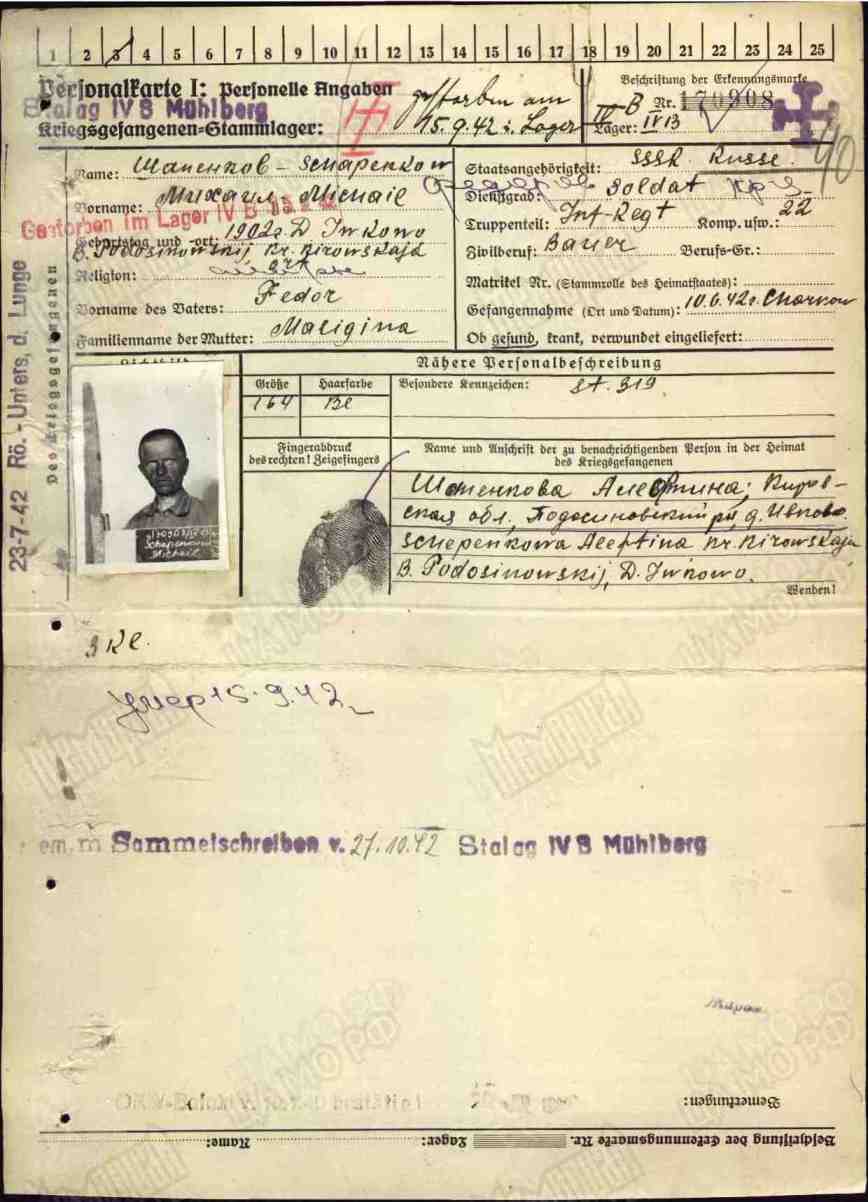 1 2 3 4 5 6 7 8 9 10 11 12 13 14 15 16 17 18 19 20 21 22 23 24 25
Personalkarte I: Personelle Angaben
Beschriftung der Erkennungsmarke
Stalag IV B Mühlberg
gestorben am
IV B Nr. 170908
Kriegsgefangenen-Stammlager:
15.9.42 i. Lager
Lager: IV B
40
Des Kriegsgefangenen
Name: Шапенков - Schapenkow
Staatsangehörigkeit: SSSR. Russe.
Vorname: Михаил Michail
Dienstgrad: Soldat
Gestorben im Lager IV B
Truppenteil: Inf-Regt Komp. usw.: 22
Geburtstag und -ort: 1902 D. Iwkowo
B. Podosinowskij Kr. Kirowskaja
Zivilberuf: Bauer Berufs-Gr.:
Religion:
Matrikel Nr. (Stammrolle des Heimatstaates):
Vorname des Vaters: Fedor
Gefangennahme (Ort und Datum): 10.6.42
Familienname der Mutter: Maligina
Ob gesund, krank, verwundet eingeliefert:
23-7-42 Rö.-Unters. d. Lunge
Nähere Personalbeschreibung
Größe Haarfarbe Besondere Kennzeichen: St. 319
164 Bl
Fingerabdruck
des rechten! Zeigefingers
Name und Anschrift der zu benachrichtigenden Person in der Heimat
des Kriegsgefangenen
Шапенкова Алефтина, Киров-
ская обл, Подосиновский
Schepenkowa Aleftina Kr. Kirowskaja
B. Podosinowskij, D. Iwkowo.
Wenden!
170908 IV B
Schapenkow
Michail
Kl.
Умер 15.9.42
Sammelschreiben v. 27.10.42 Stalag IV B Mühlberg
Мемориал
ЦАМО РФ
Bemerkungen:
Beschriftung der Erkennungsmarke Nr. Lager: Name: